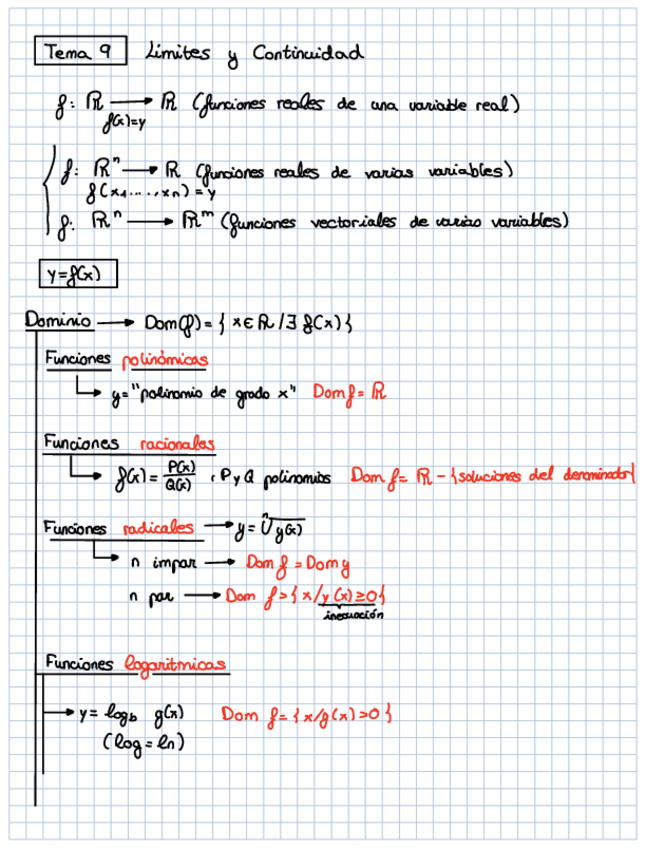 Tema 9 Límites y Continuidad
f: ℝ ⟶ ℝ (funciones reales de una variable real)
f(x)=y
f: ℝⁿ ⟶ ℝ (funciones reales de varias variables)
f(x₁,...,xₙ) = y
f: ℝⁿ ⟶ ℝᵐ (funciones vectoriales de varias variables)
y=f(x)
Dominio ⟶ Dom(f) = { x ∈ ℝ / ∃ f(x) }
Funciones polinómicas
y = "polinomio de grado x" Dom f = ℝ
Funciones racionales
f(x) = P(x)/Q(x) , P y Q polinomios Dom f = ℝ - {soluciones del denominador}
Funciones radicales ⟶ y = ⁿ√g(x)
n impar ⟶ Dom f = Dom g
n par ⟶ Dom f = { x / g(x) ≥ 0 }
inecuación
Funciones logarítmicas
y = log_b g(x) Dom f = { x / g(x) > 0 }
(log = ln)